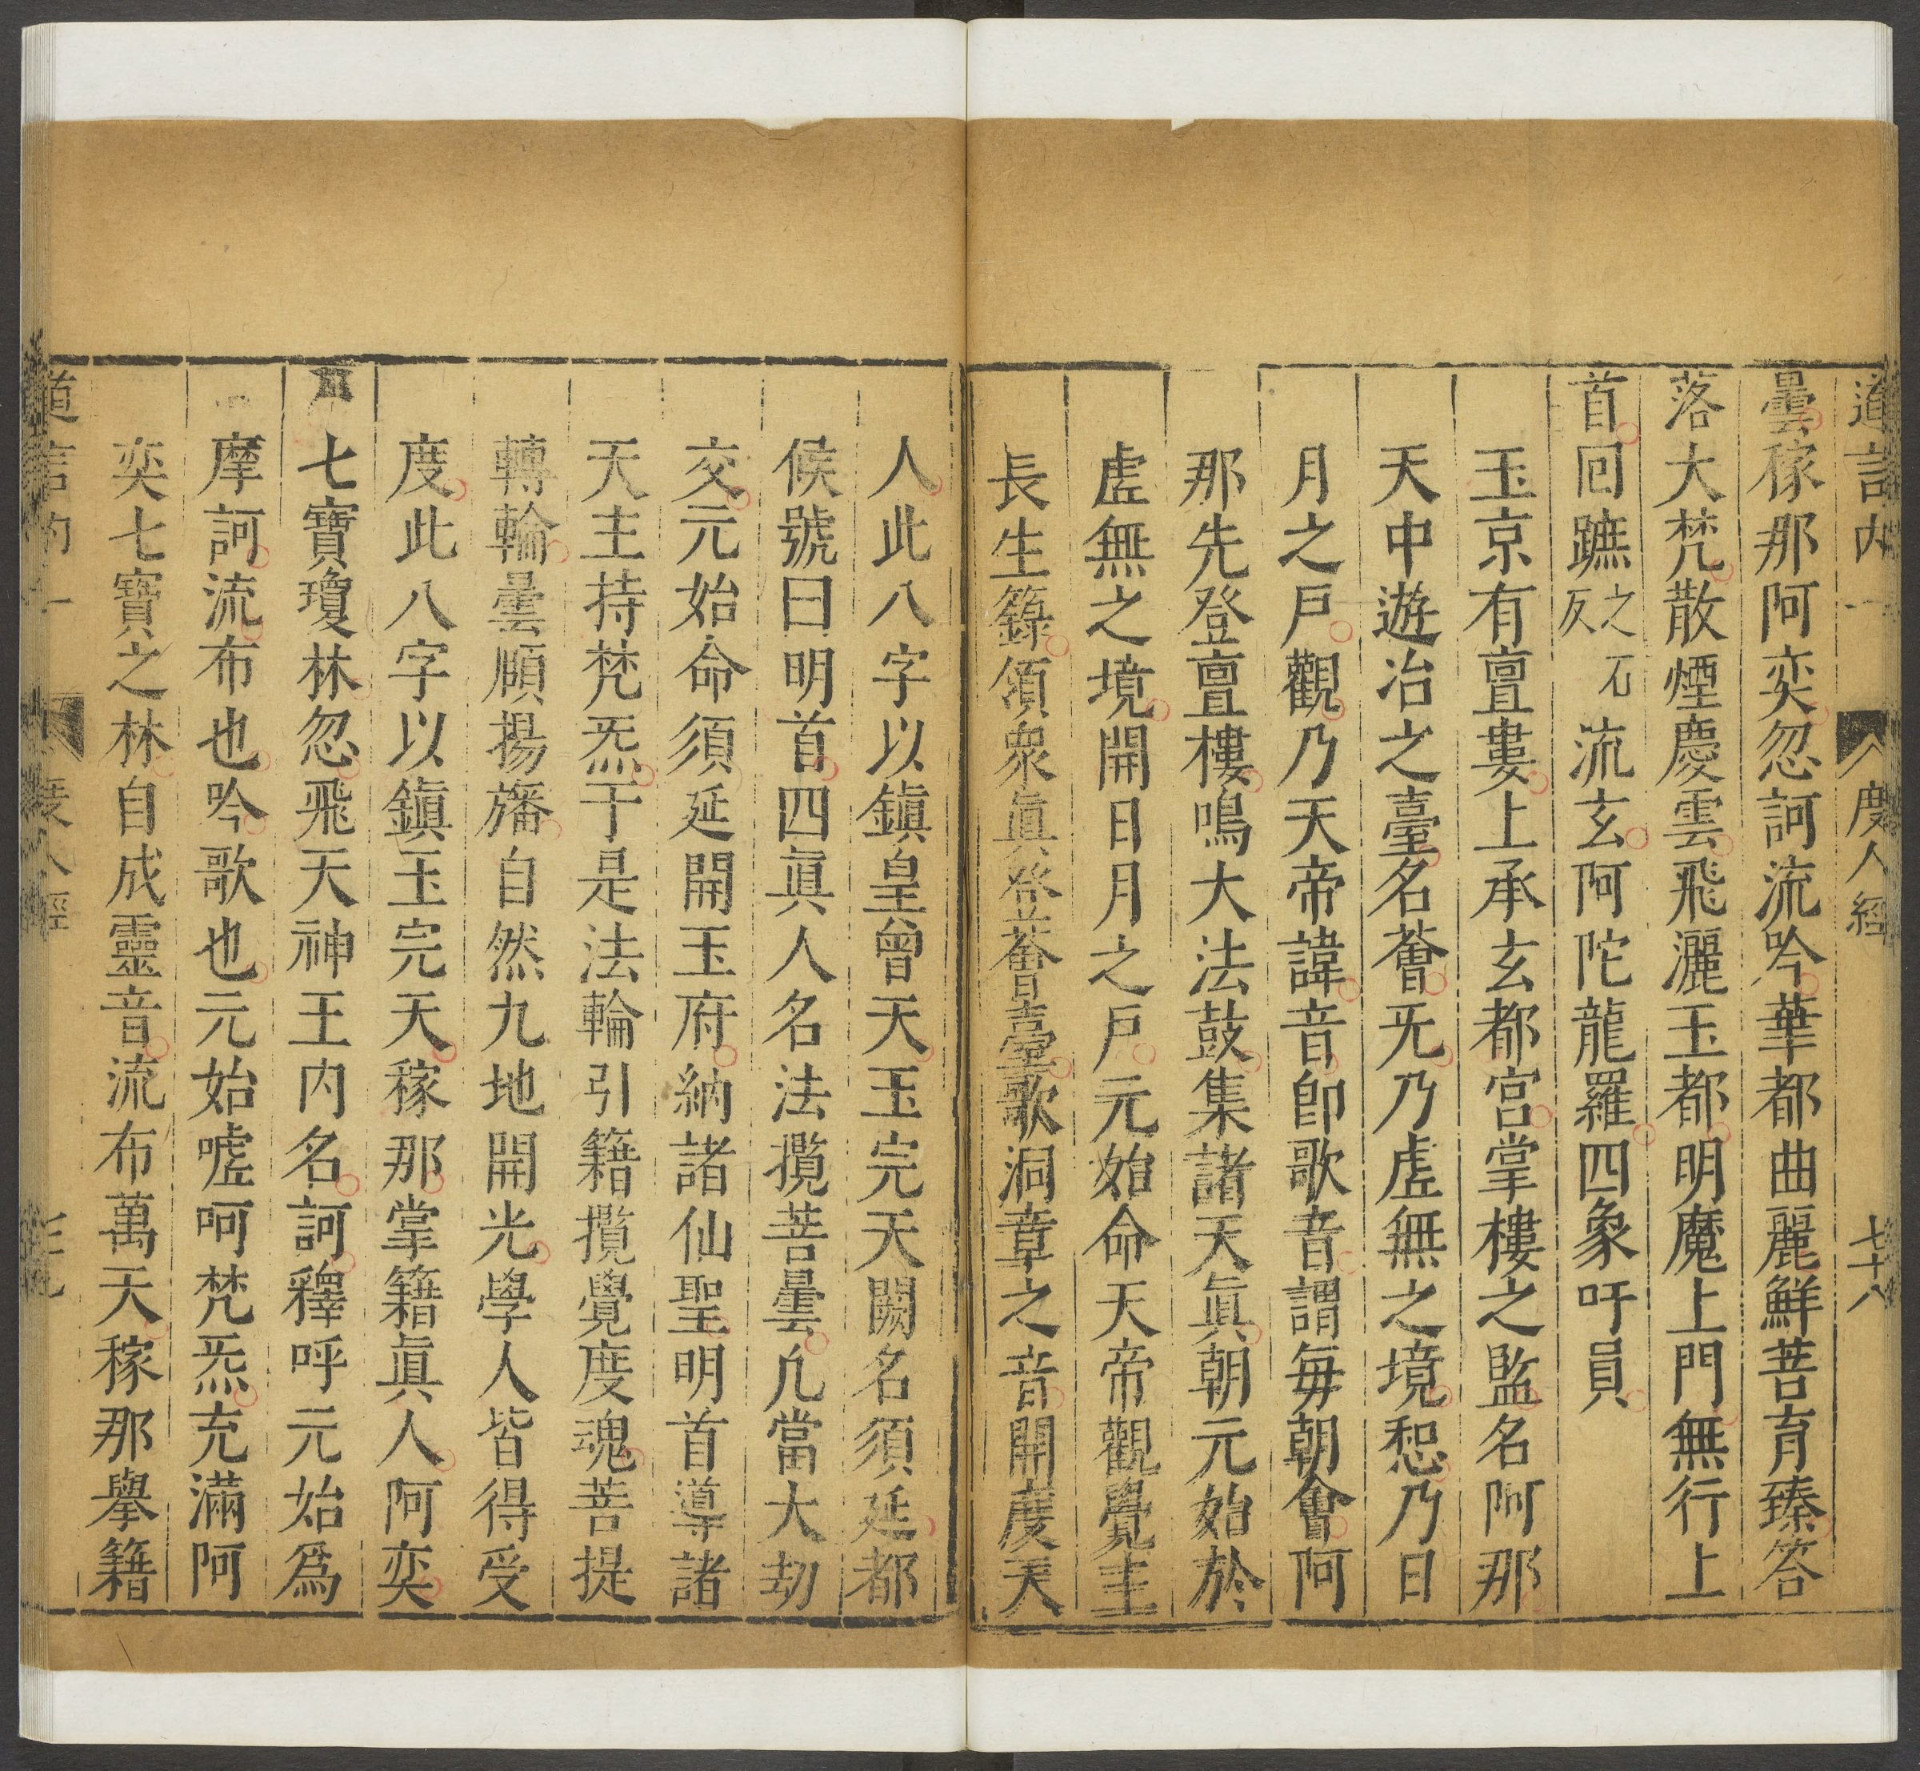 道言內一 度人經 七十八
曇稼那阿奕忽訶流吟華都曲麗鮮菩育臻答
落大梵散煙慶雲飛灑玉都明魔上門無行上
首回蹠之石反流玄阿陀龍羅四象吁員
玉京有亶婁上承玄都宮掌樓之監名阿那
天中遊冶之臺名薈旡乃虛無之境惒乃日
月之戶觀乃天帝諱音卽歌音謂每朝會阿
那先登亶樓鳴大法鼓集諸天眞朝元始於
虛無之境開日月之戶元始命天帝觀覺主
長生籙領衆眞登薈臺歌洞章之音開度天
人此八字以鎭皇曾天玉完天闕名須延都
候號曰明首四眞人名法攬菩曇凢當大劫
交元始命須延開玉府納諸仙聖明首導諸
天主持梵炁于是法輪引籍攬覺度魂菩提
轉輪曇願揚旛自然九地開光學人皆得受
度此八字以鎭玉完天稼那掌籍眞人阿奕
七寶瓊林忽飛天神王內名訶釋呼元始爲
摩訶流布也吟歌也元始噓呵梵炁充滿阿
奕七寶之林自成靈音流布萬天稼那舉籍
道言內一 度人經